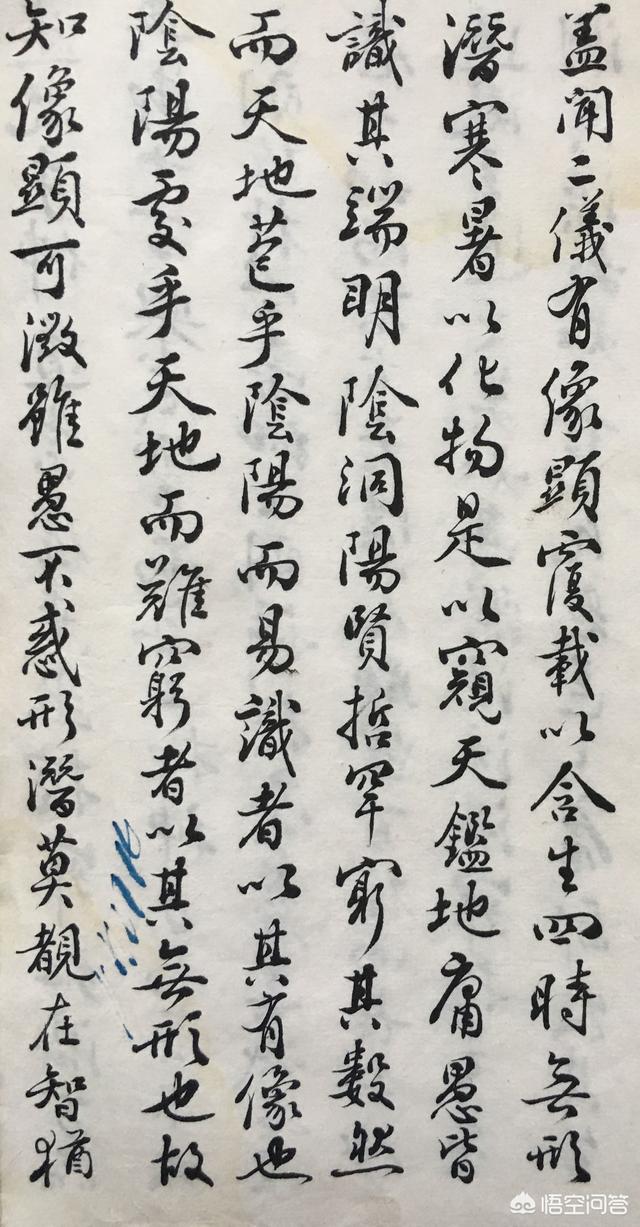 盖闻二儀有像顯覆載以含生四時無形
潛寒暑以化物是以窺天鑑地庸愚皆
識其端明陰洞陽賢哲罕窮其數然
而天地苞乎陰陽而易識者以其有像也
陰陽處乎天地而難窮者以其無形也故
知像顯可徵雖愚不惑形潛莫覩在智猶
悟空问答